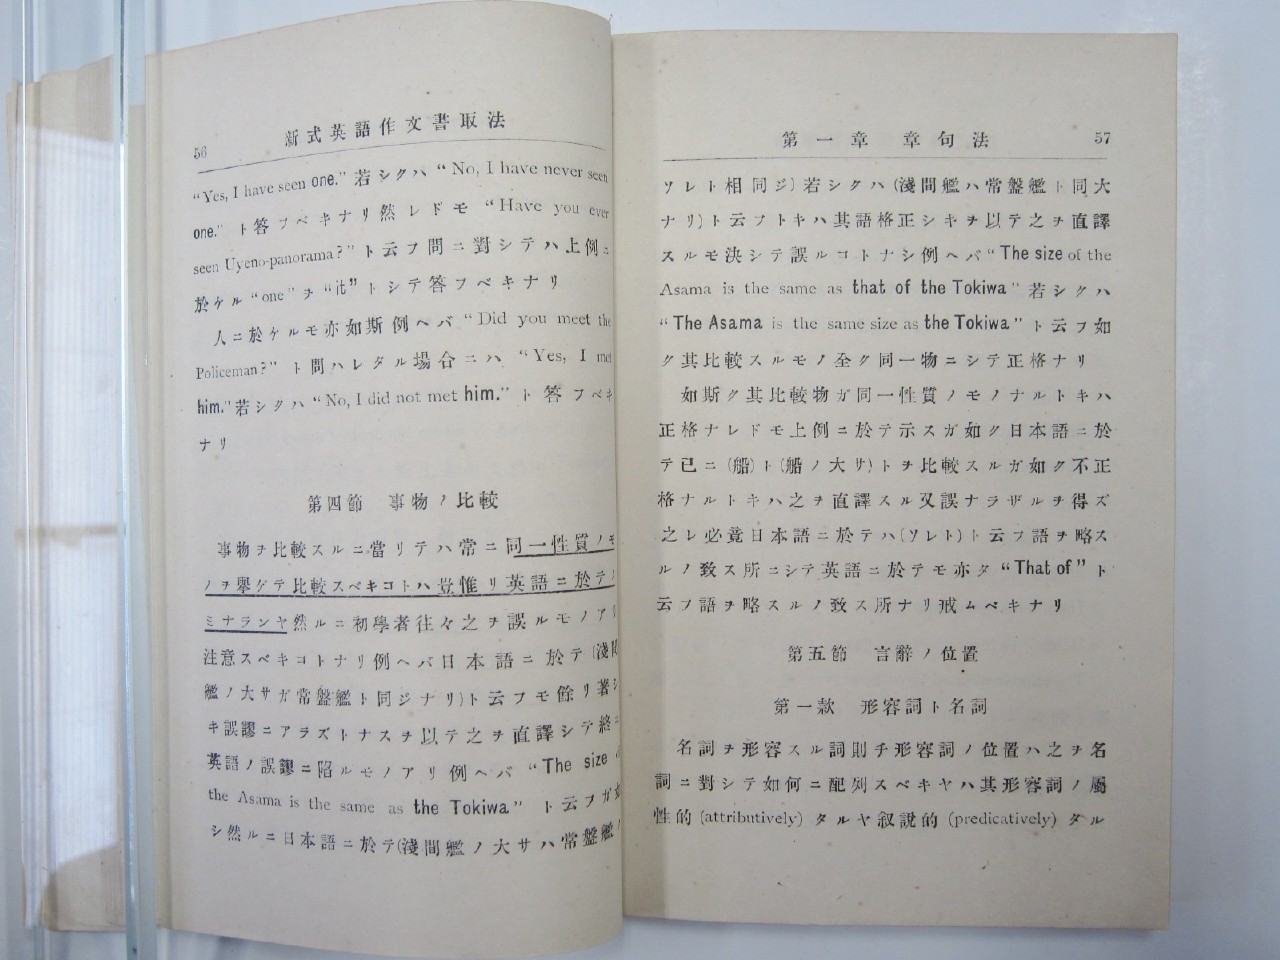 56
新式英語作文書取法
“Yes, I have seen one.” 若シクハ “No, I have never seen
one.” ト答フベキナリ然レドモ “Have you ever
seen Uyeno-panorama?” ト云フ問ニ對シテハ上例ニ
於ケル “one” ヲ “it” トシテ答フベキナリ
人ニ於ケルモ亦如斯例ヘバ “Did you meet the
Policeman?” ト問ハレタル場合ニハ “Yes, I met
him.” 若シクハ “No, I did not met him.” ト答フベキ
ナリ
第四節 事物ノ比較
事物ヲ比較スルニ當リテハ常ニ同一性質ノモ
ノヲ擧ゲテ比較スベキコトハ豈惟リ英語ニ於テノ
ミナランヤ然ルニ初學者往々之ヲ誤ルモノアリ
注意スベキコトナリ例ヘバ日本語ニ於テ(淺間
艦ノ大サガ常盤艦ト同ジナリ)ト云フモ餘リ著シ
キ誤謬ニアラズトナスヲ以テ之ヲ直譯シテ終ニ
英語ノ誤謬ニ陷ルモノアリ例ヘバ “The size of
the Asama is the same as the Tokiwa” ト云フガ如
シ然ルニ日本語ニ於テ(淺間艦ノ大サハ常盤艦ノ
第一章 章句法
57
ソレト相同ジ)若シクハ(淺間艦ハ常盤艦ト同大
ナリ)ト云フトキハ其語格正シキヲ以テ之ヲ直譯
スルモ決シテ誤ルコトナシ例ヘバ “The size of the
Asama is the same as that of the Tokiwa” 若シクハ
“The Asama is the same size as the Tokiwa” ト云フ如
ク其比較スルモノ全ク同一物ニシテ正格ナリ
如斯ク其比較物ガ同一性質ノモノナルトキハ
正格ナレドモ上例ニ於テ示スガ如ク日本語ニ於
テ已ニ(船)ト(船ノ大サ)トヲ比較スルガ如ク不正
格ナルトキハ之ヲ直譯スル又誤ナラザルヲ得ズ
之レ必竟日本語ニ於テハ(ソレト)ト云フ語ヲ略ス
ルノ致ス所ニシテ英語ニ於テモ亦タ “That of” ト
云フ語ヲ略スルノ致ス所ナリ戒ムベキナリ
第五節 言辭ノ位置
第一款 形容詞ト名詞
名詞ヲ形容スル詞則チ形容詞ノ位置ハ之ヲ名
詞ニ對シテ如何ニ配列スベキヤハ其形容詞ノ屬
性的 (attributively) タルヤ叙說的 (predicatively) タル